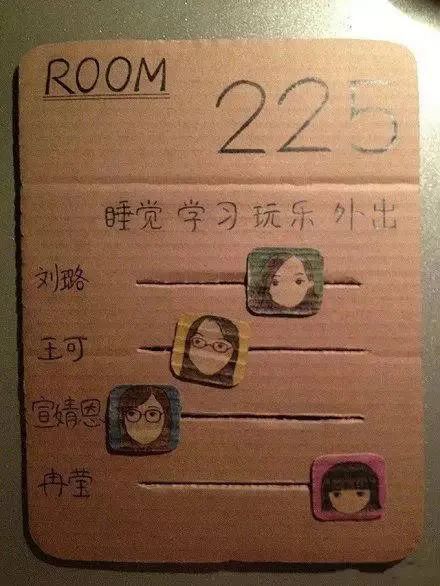 ROOM
225
睡觉 学习 玩乐 外出
刘璐
王可
宣婧恩
冉莹